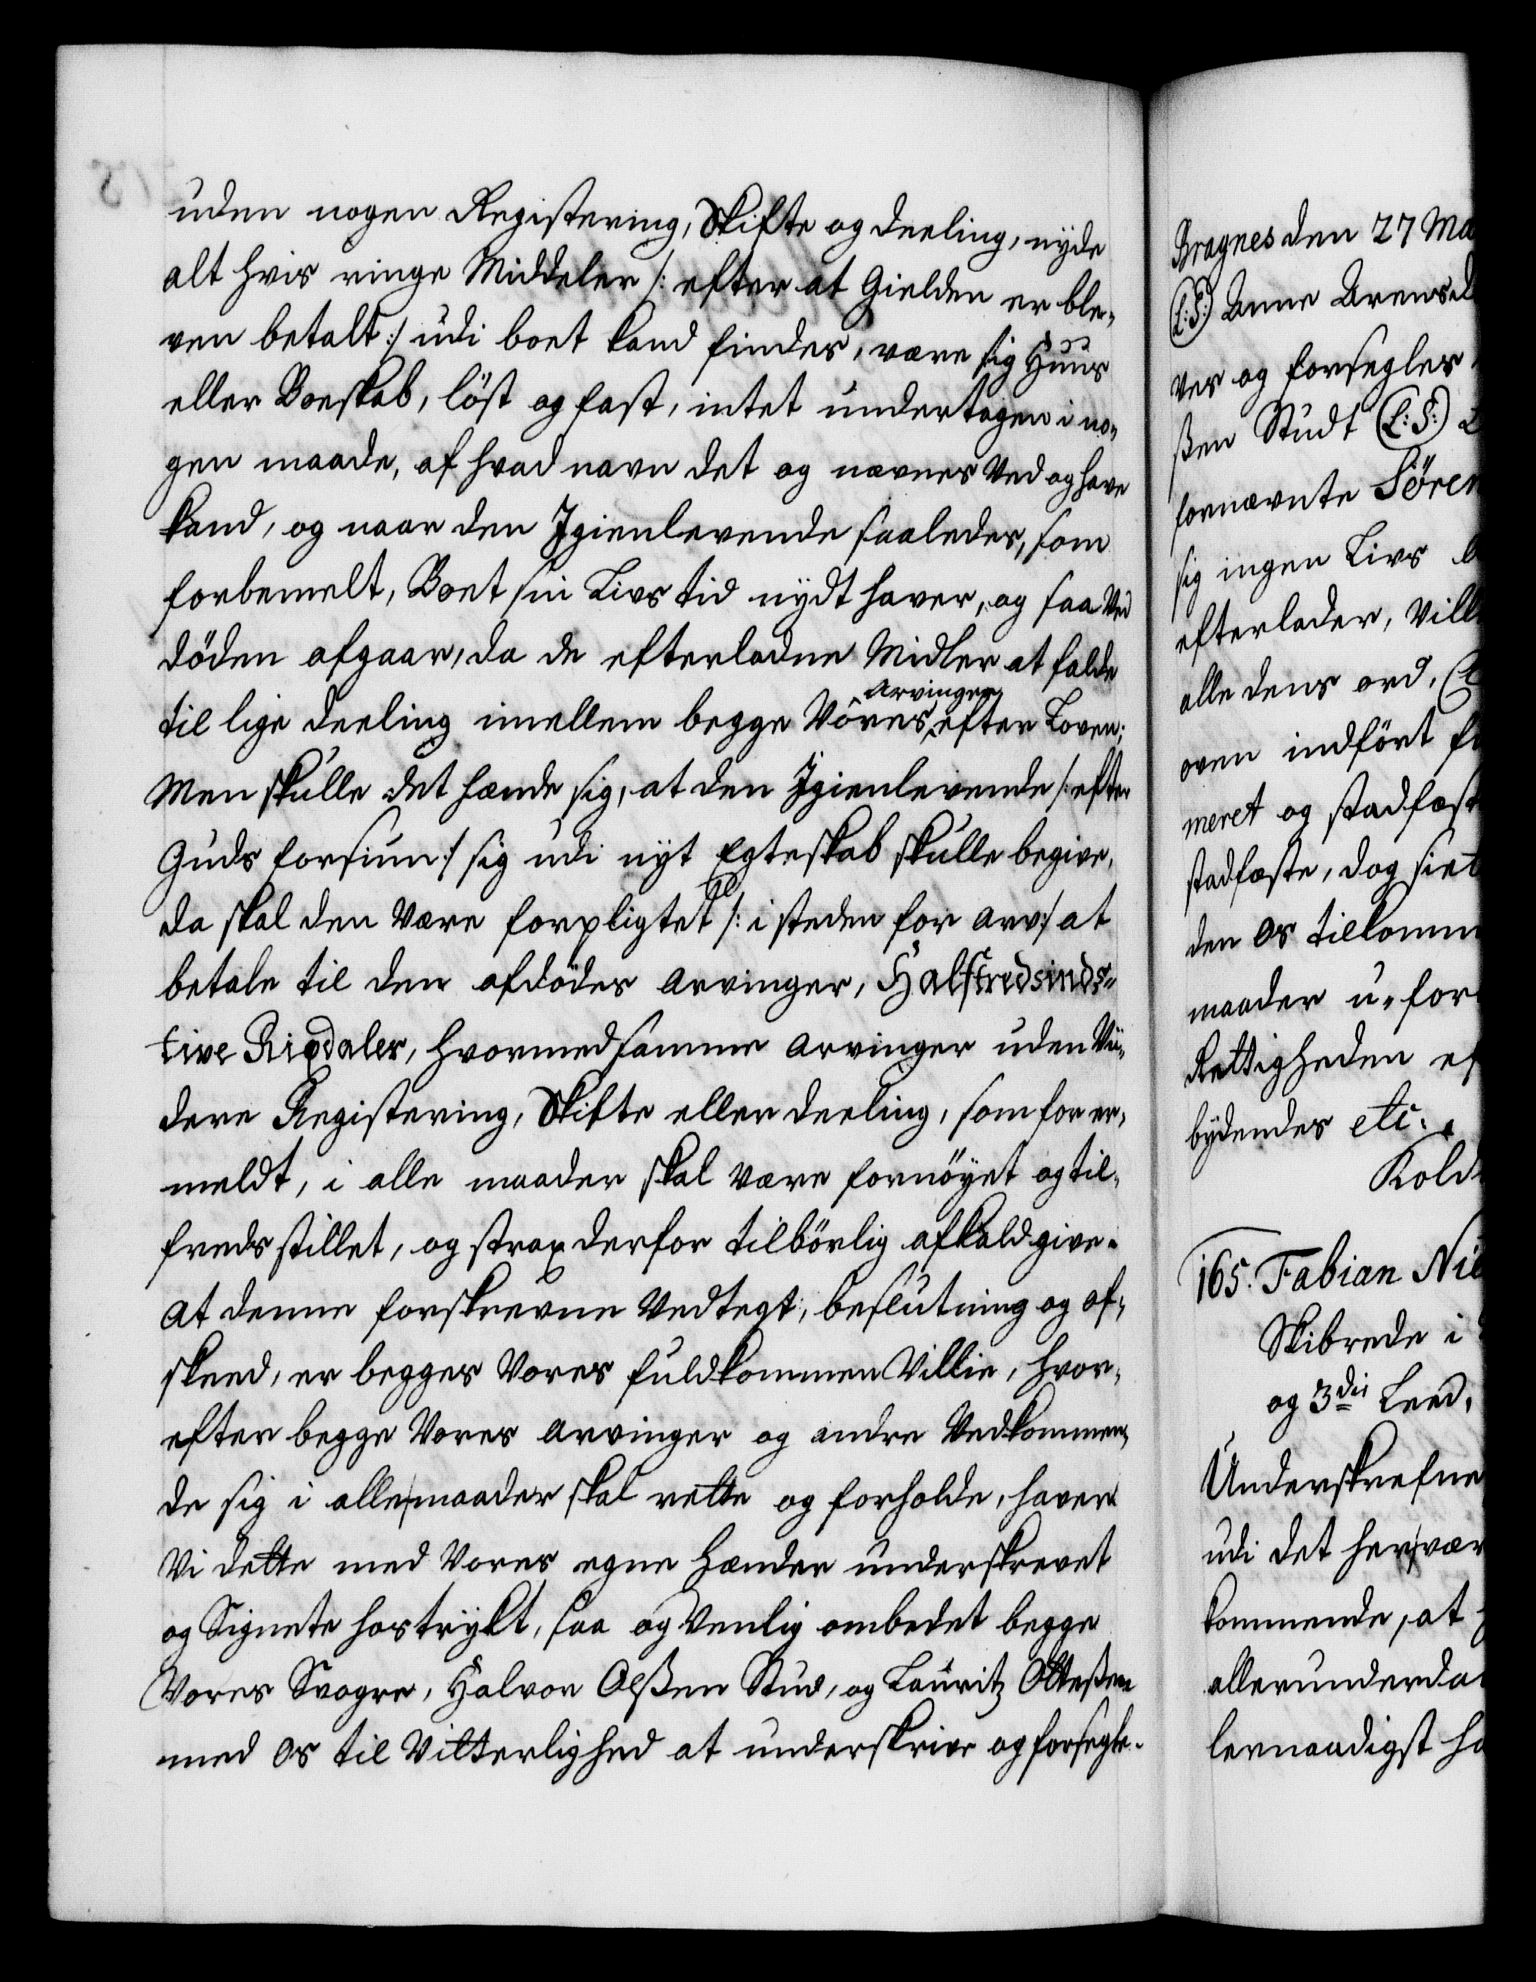 uden nogen Registering, Skifte og deeling, nyde
alt hvis ringe Middeler /: efter at Gielden er ble-
ven betalt :/ udi boet kand findes, være sig Huus
eller Boeskab, löst og fast, intet undertagen i no-
gen maade, af hvad navn det og nævnes Ved og have
kand, og naar den Igienlevende saaledes, som
forbemelt, Boet sin Livs tid nydt haver, og saa Ved
döden afgaar, da de efterladne Midler at falde
til lige deeling imellem begge Vóres arvinger efter Loven;
Men skulle det hænde sig, at den Igienlevende /: efter
Guds forsiun :/ sig udi nyt Egteskab skulle begive,
da skal den Være forpligtet /: i steden for arv :/ at
betale til den afdödes arvinger, Halftredsinds-
tive Rixdaler, hvormed samme arvinger uden Vii-
dere Registering, Skifte eller deeling, som for er-
meldt, i alle maader skal være fornöyet og til-
freds stillet, og strax derfor tilbörlig afkald give.
At denne forskrevne Vedtegt, beslutning og af-
skeed, er begges Vores fuldkommen Villie, hvor-
efter begge Vores arvinger og andre Vedkommen-
de sig i alle maader skal rette og forholde, haver
Vi dette med Vores egne hænder underskrevet
og Signete hostrykt, saa og Venlig ombedet begge
Vores Svogre, Halvor Olßen Stud, og Lauritz Olleßen
med os til Vitterlighed at underskrive og forsegle.
Bragnes den 27 Ma
(L:S:) Anne Arensd
ves og forsegles
ßen Studt (L:S:)
fornævnte Sören
sig ingen Livs
efterlader, Vill
alle dens ord,
oven indfört
meret og stadfæst
stadfæste, dog siet
den os tilkomm
maader u-for
Rettigheden ef
bydendes etc:
Kold
165. Fabian Nie
Skibrede i
og 3die Leed,
Underskrefne
udi det her vær
kommende, at
allerunderda
lernaadigst ha